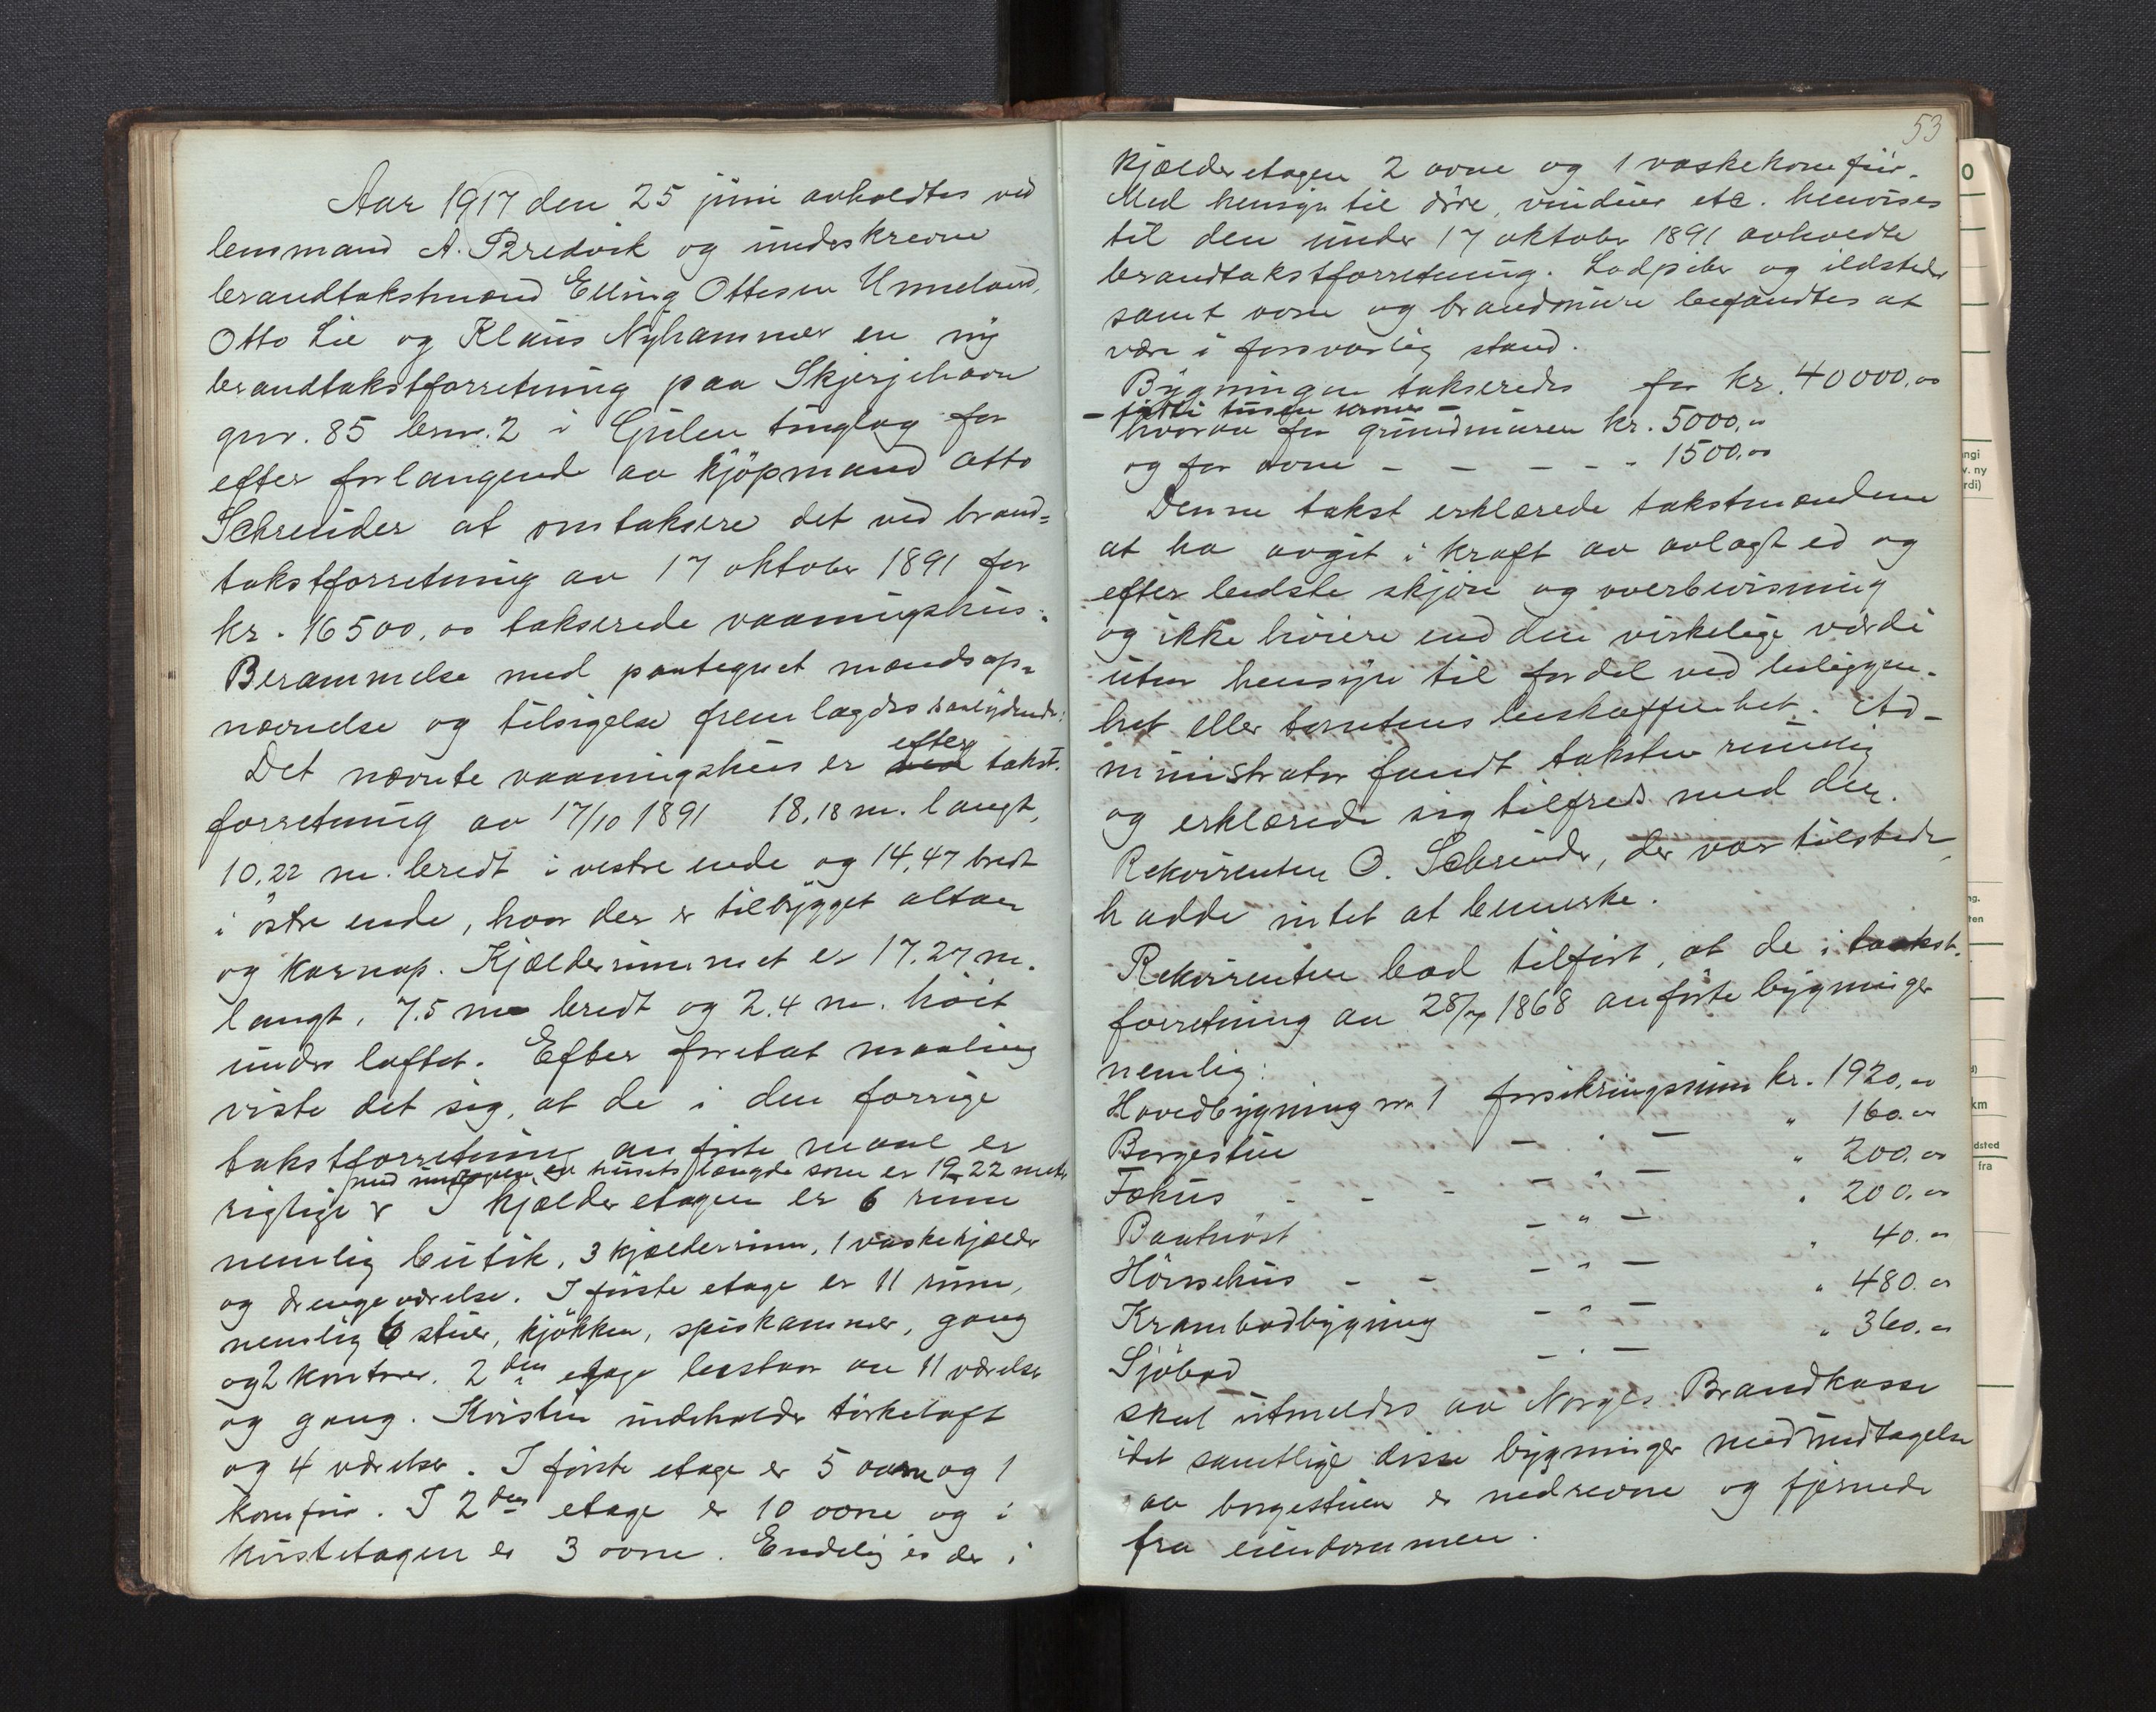 Aar 1917 den 25 juni avholdtes ved
lensmand A. Bredvik og underskrevne
brandtakstmænd Elling Ottesen Unneland,
Otto Lie og Klaus Nyhammer en ny
brandtakstforretning paa Skjerjehavn
gnr. 85 brnr. 2 i Gulen tinglag for
efter forlangende av kjöpmand Otto
Schreuder at omtaksere det ved brand=
takstforretning av 17 oktober 1891 for
kr. 16500,00 takserede vaaningshus.
Berammelse med paategnet mændsop-
nævnelse og tilsigelse fremlagdes saalydende:
Det nævnte vaaningshus er efter takst-
forretning av 17/10 1891 18,18 m. langt,
10,22 m. bredt i vestre ende og 14,47 bredt
i östre ende, hvor der er tilbygget altan
og karnap. Kjælderrummet er 17,27 m.
langt, 7.5 m bredt og 2.4 m. höit
under loftet. Efter foretat maaling
viste det sig, at de i den forrige
takstforretning anförte maal er
med undtagen av husets længde som er 19,22 meter
rigtige. I kjælderetagen er 6 rum
nemlig butik, 3 kjælderrum, 1 vaskekjælder
og drengeværelse. I förste etage er 11 rum,
nemlig 6 stuer, kjökken, spiskammer, gang
og 2 kontorer. 2den etage bestaar av 11 værelser
og gang. Kvisten indeholder törkeloft
og 4 værelser. I förste etage er 5 ovne og 1
komfur. I 2den etage er 10 ovne og i
kvistetagen er 3 ovne. Endelig er der i
53
kjælderetagen 2 ovne og 1 vaskekomfür.
Med hensyn til döre, vinduer etc. henvises
til den under 17 oktober 1891 avholdte
brandtakstforretning. Lodpiber og ildsteder
samt ovne og brandmure befandtes at
være i forsvarlig stand.
Bygningen takseredes for kr. 40000,00
- fürti tusen kroner -
hvorav for grundmuren kr. 5000,00
og for ovne - - - - - 1500,00
Denne takst erklærede takstmændene
at ha avgit i kraft av avlagt ed og
efter bedste skjön og overbevisning
og ikke höiere end den virkelige værdi
uten hensyn til fordel ved beliggen-
het eller tomtens beskaffenhet. Ad-
ministrator fandt taksten rimelig
og erklærede sig tilfreds med den.
Rekvirenten O. Schreuder, der var tilstede,
hadde intet at bemerke.
Rekvirenten bad tilfört, at de i takst-
forretning av 28/7 1868 anförte bygninger
nemlig:
Hovedbygning nr. 1 forsikringssum kr. 1920,00
Borgestue - " - " 160.00
Fæhus - - - - " - " 200.00
Bauthöst - " - " 200.00
Hönsehus - - - " - " 40.00
Krambodbygning - " - " 480.00
Sjöbod - " - " 360.00
skal utmeldes av Norges Brandkasse
idet samtlige disse bygninger med undtagelse
av borgestuen er nedrevne og fjernede
fra eiendommen.